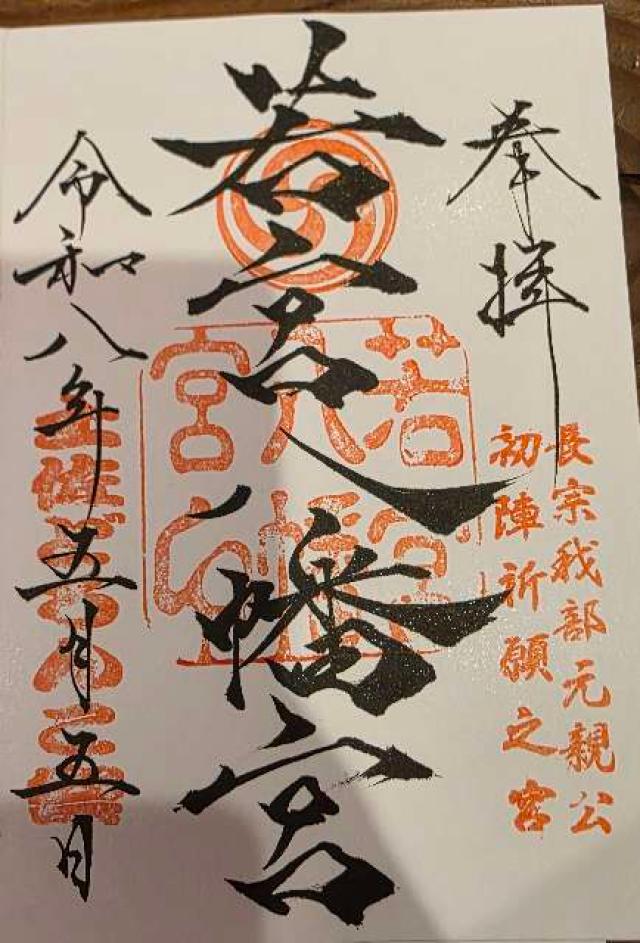 奉拝
長宗我部元親公
初陣祈願之宮
若宮八幡宮
若宮八幡宮
令和八年五月五日